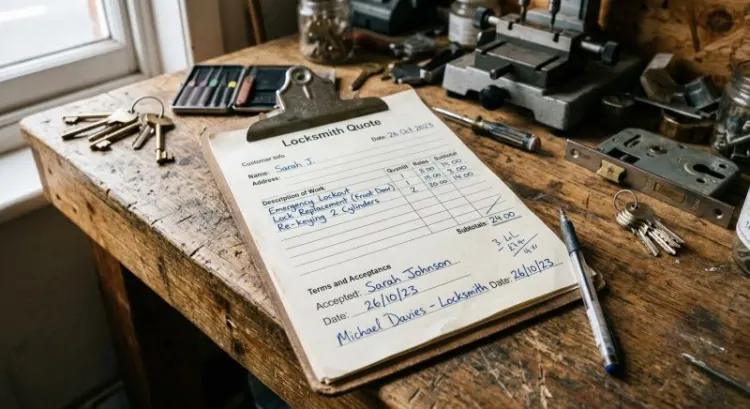 Locksmith Quote
Date: 26 Oct 2023
Customer Info
Name: Sarah J.
Address:
Description of Work Rates Subtotal
Emergency Lockout 1
Lock Replacement (Front Door)
Re-keying 2 Cylinders 2
Subtotals: 24.00
Terms and Acceptance
Accepted: Sarah Johnson
Date: 26/10/23
Michael Davies - Locksmith Date: 26/10/23